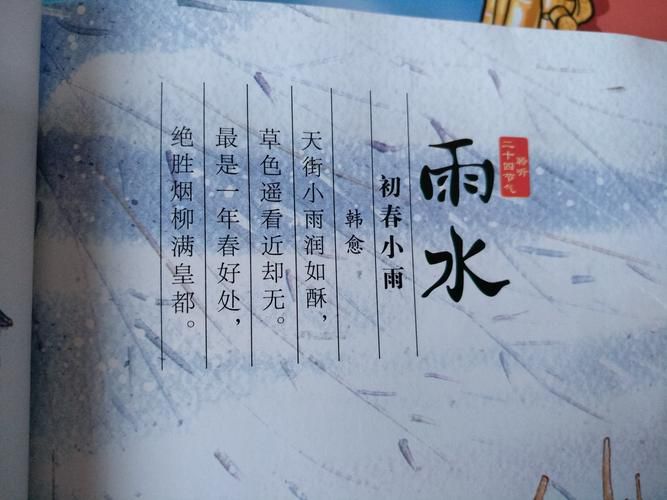 聆听
二十四节气
雨水
初春小雨
韩愈
天街小雨润如酥，
草色遥看近却无。
最是一年春好处，
绝胜烟柳满皇都。